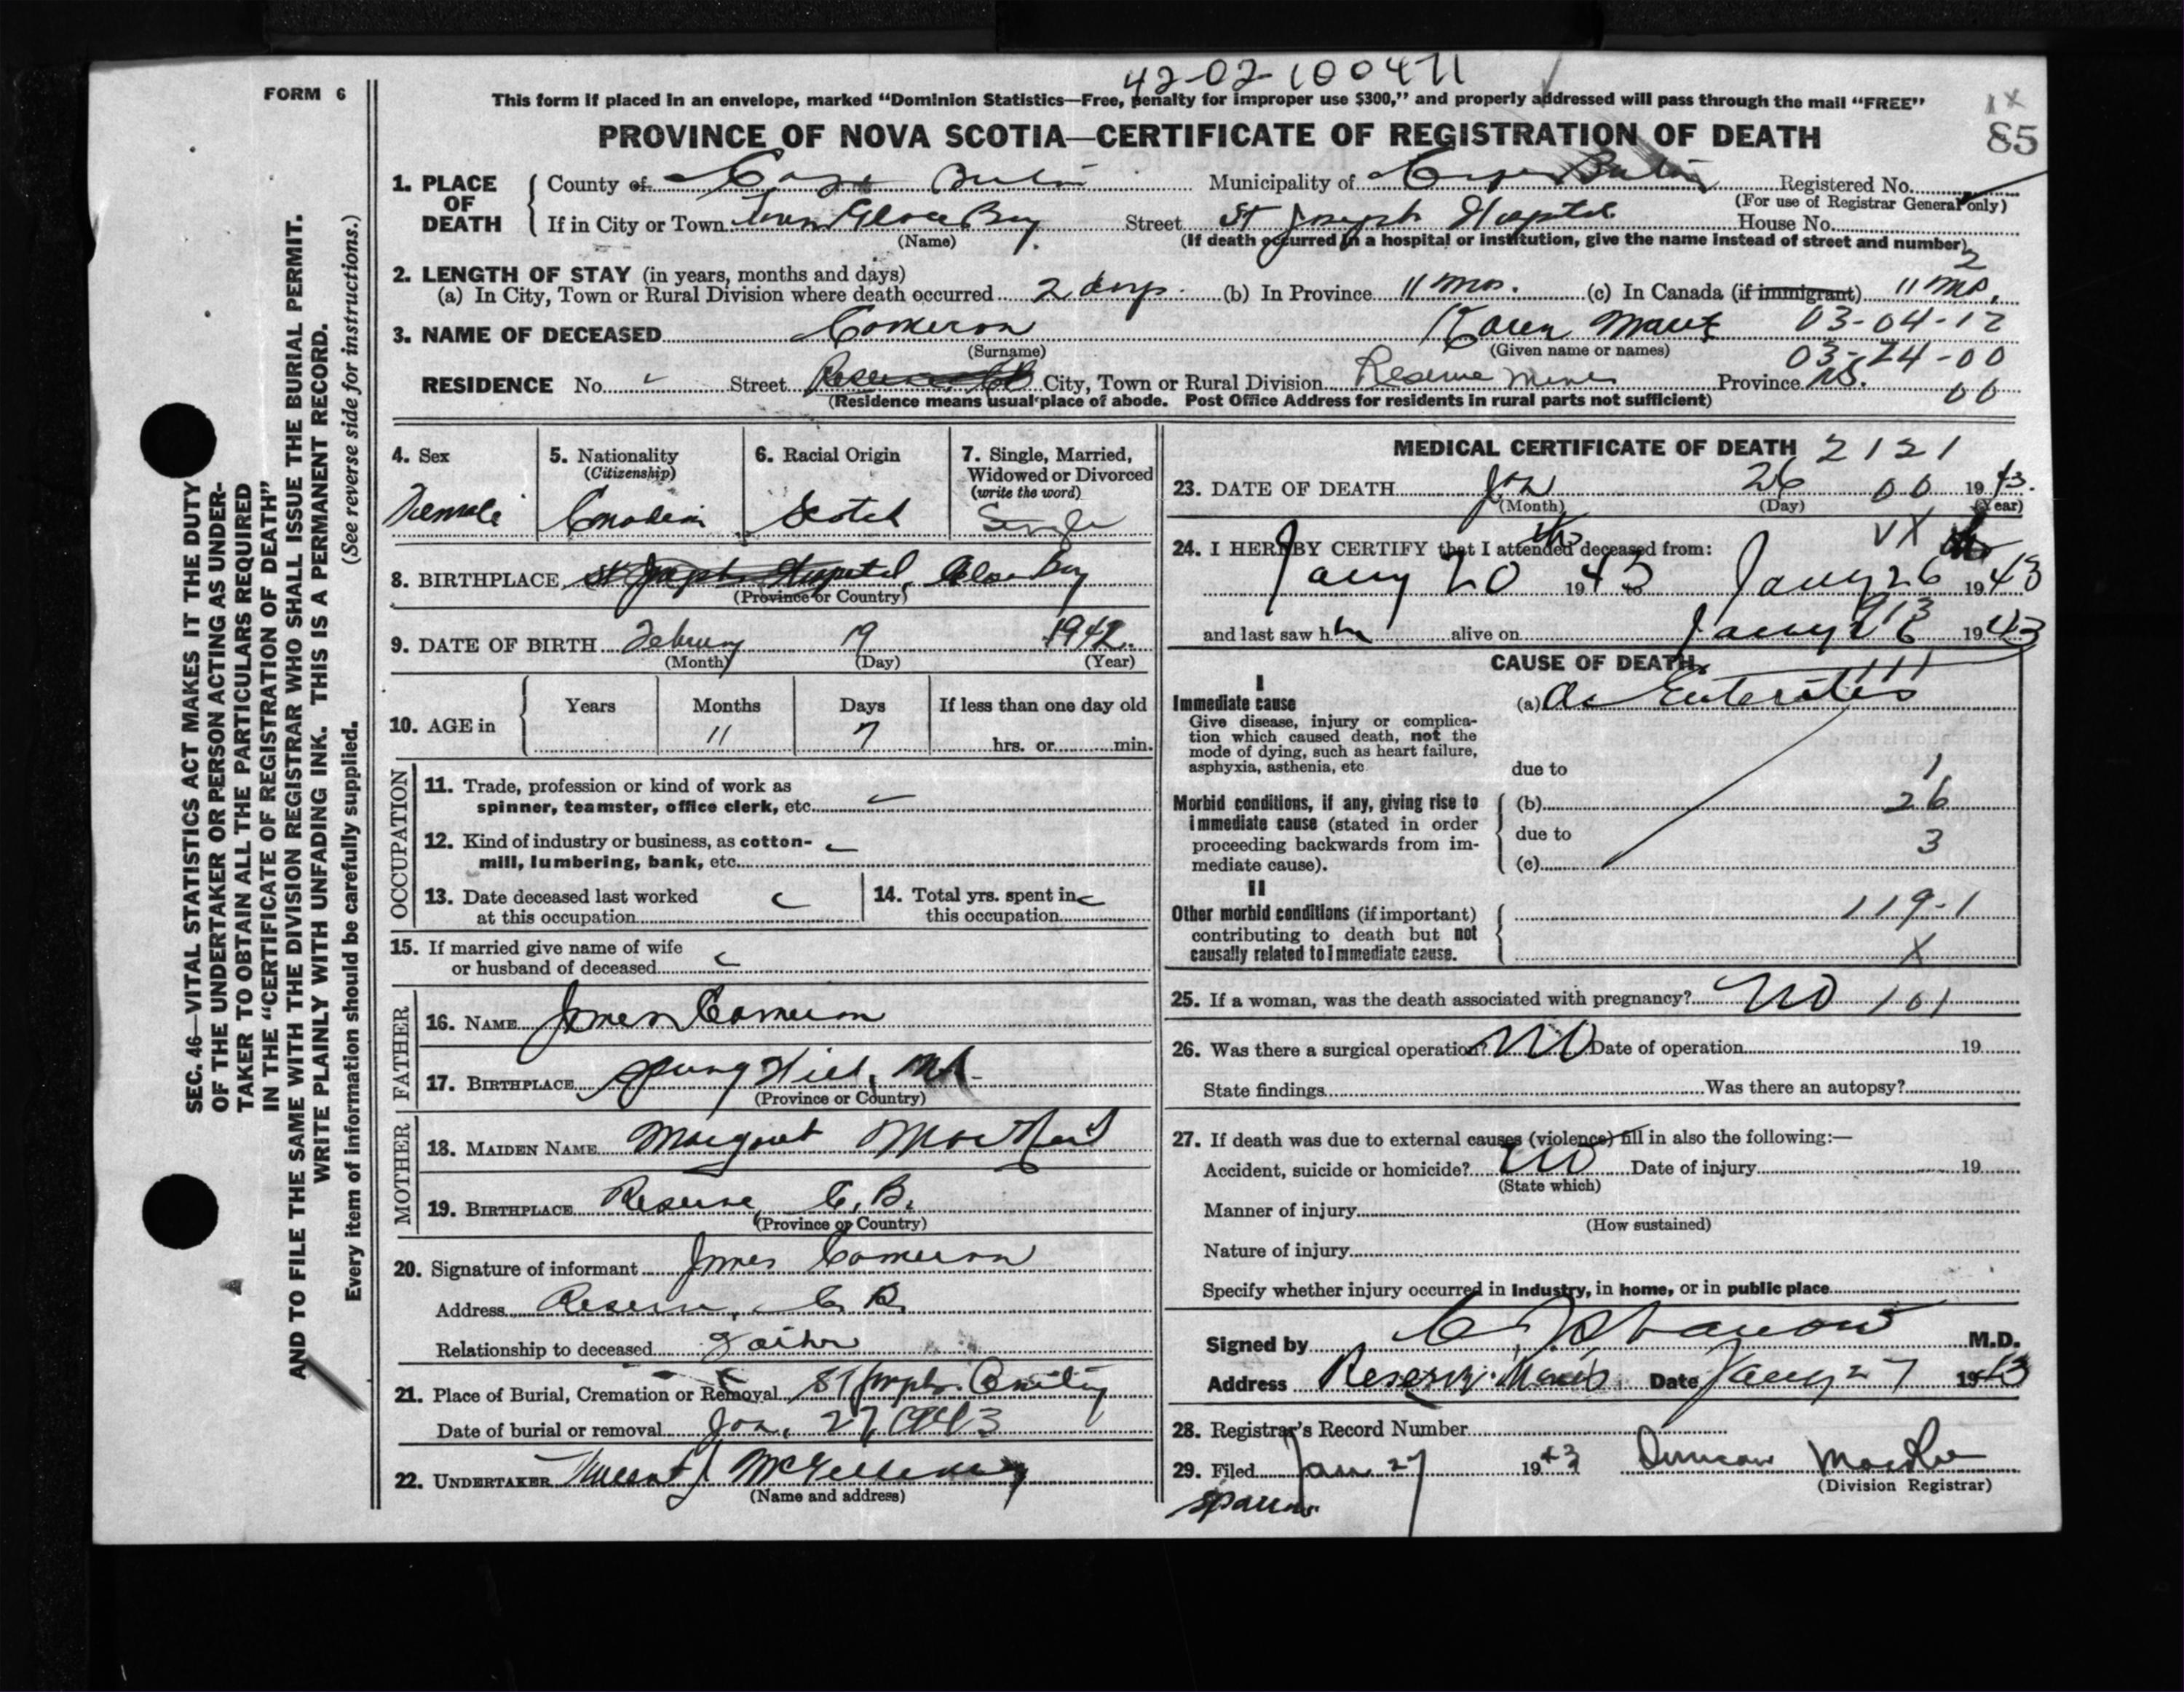 42-02-100471
FORM 6
This form if placed in an envelope, marked "Dominion Statistics—Free, penalty for improper use $300," and properly addressed will pass through the mail "FREE"
PROVINCE OF NOVA SCOTIA—CERTIFICATE OF REGISTRATION OF DEATH
85
1. PLACE OF DEATH
County of Cape Breton Municipality of Cape Breton Registered No.
(For use of Registrar General only)
If in City or Town Town Glace Bay Street St Joseph Hospital House No.
(Name) (If death occurred in a hospital or institution, give the name instead of street and number)
2. LENGTH OF STAY (in years, months and days)
2
(a) In City, Town or Rural Division where death occurred 2 days. (b) In Province 11 mos. (c) In Canada (if immigrant) 11 mos.
3. NAME OF DECEASED Cameron Karen 03-04-12
(Surname) (Given name or names)
03-24-00
RESIDENCE No. Street Reserve CB City, Town or Rural Division Reserve Mines Province N.S.
00
(Residence means usual place of abode. Post Office Address for residents in rural parts not sufficient)
4. Sex
Female
5. Nationality
(Citizenship)
Canadian
6. Racial Origin
Scotch
7. Single, Married,
Widowed or Divorced
(write the word)
Single
8. BIRTHPLACE St Joseph Hospital, Glace Bay
(Province or Country)
9. DATE OF BIRTH February 19 1942.
(Month) (Day) (Year)
10. AGE in
Years Months Days If less than one day old
11 7 hrs. or min.
OCCUPATION
11. Trade, profession or kind of work as
spinner, teamster, office clerk, etc.
12. Kind of industry or business, as cotton-
mill, lumbering, bank, etc.
13. Date deceased last worked
at this occupation
14. Total yrs. spent in
this occupation
15. If married give name of wife
or husband of deceased
FATHER
16. NAME James Cameron
17. BIRTHPLACE Spring Hill, N.S.
(Province or Country)
MOTHER
18. MAIDEN NAME Margaret MacNeil
19. BIRTHPLACE Reserve, C.B.
(Province or Country)
20. Signature of informant James Cameron
Address Reserve, C.B.
Relationship to deceased Father
21. Place of Burial, Cremation or Removal St Josephs
Date of burial or removal Jan. 27, 1943
22. UNDERTAKER
(Name and address)
MEDICAL CERTIFICATE OF DEATH 2121
23. DATE OF DEATH Jan 26 00 1943.
(Month) (Day) (Year)
VX
24. I HEREBY CERTIFY that I attended deceased from:
Jany 20th 1943 to Jany 26 1943
913
and last saw her alive on Jany 26 1943
CAUSE OF DEATH
111
I
Immediate cause
Give disease, injury or complica-
tion which caused death, not the
mode of dying, such as heart failure,
asphyxia, asthenia, etc
(a) Ac Enteritis
due to
1
Morbid conditions, if any, giving rise to
immediate cause (stated in order
proceeding backwards from im-
mediate cause).
(b) 26
due to
3
(c)
II
Other morbid conditions (if important)
contributing to death but not
causally related to immediate cause.
119-1
X
25. If a woman, was the death associated with pregnancy? NO 101
26. Was there a surgical operation? NO Date of operation 19
State findings Was there an autopsy?
27. If death was due to external causes (violence) fill in also the following:—
Accident, suicide or homicide? NO Date of injury 19
(State which)
Manner of injury
(How sustained)
Nature of injury
Specify whether injury occurred in Industry, in home, or in public place
Signed by M.D.
Address Reserve Mines Date Jany 27 1943
28. Registrar's Record Number
29. Filed Jan 27 1943 Duncan
(Division Registrar)
SEC. 46—VITAL STATISTICS ACT MAKES IT THE DUTY
OF THE UNDERTAKER OR PERSON ACTING AS UNDER-
TAKER TO OBTAIN ALL THE PARTICULARS REQUIRED
IN THE "CERTIFICATE OF REGISTRATION OF DEATH"
AND TO FILE THE SAME WITH THE DIVISION REGISTRAR WHO SHALL ISSUE THE BURIAL PERMIT.
WRITE PLAINLY WITH UNFADING INK. THIS IS A PERMANENT RECORD.
Every item of information should be carefully supplied. (See reverse side for instructions.)